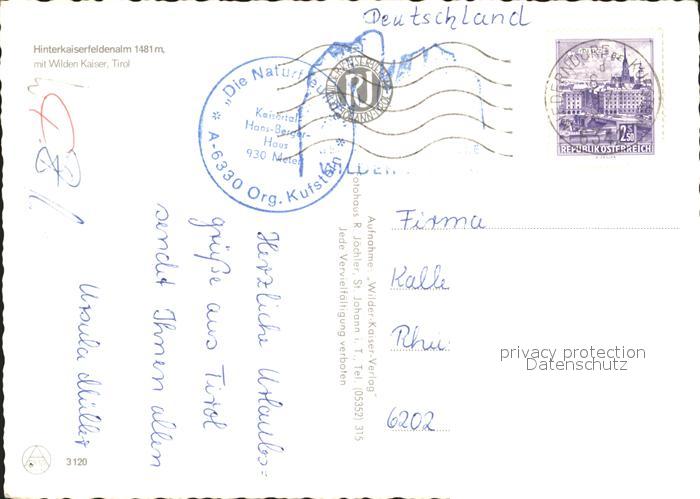 Deutschland
Hinterkaiserfeldenalm 1481 m,
mit Wilden Kaiser, Tirol
"Die Naturfreunde"
Kaisertal
Hans-Berger-
Haus
930 Meter
* A-6330 Org. Kufstein *
2.50
REPUBLIK ÖSTERREICH
Herzliche Urlaubs=
grüße aus Tirol
sendet Ihnen allen
Ursula Müller
Aufnahme: „Wilder-Kaiser-Verlag"
Fotohaus R. Jöchler, St. Johann i. T., Tel. (05352) 315
Jede Vervielfältigung verboten
Firma
Kalle
6202
privacy protection
Datenschutz
3120